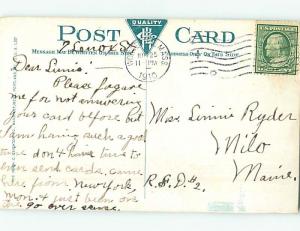 POST CARD
QUALITY
MESSAGE MAY BE WRITTEN ON THIS SIDE
MASS
1910
U.S. POSTAGE
Dear Linnie!
Please forgive
me for not answering
your card before but
I am having such a good
time don't have time to
even send cards. came
here from New York,
Mon. & just been on
the go ever sense.
Miss Linnie Ryder
Milo
Maine.
R.F.D. #2.